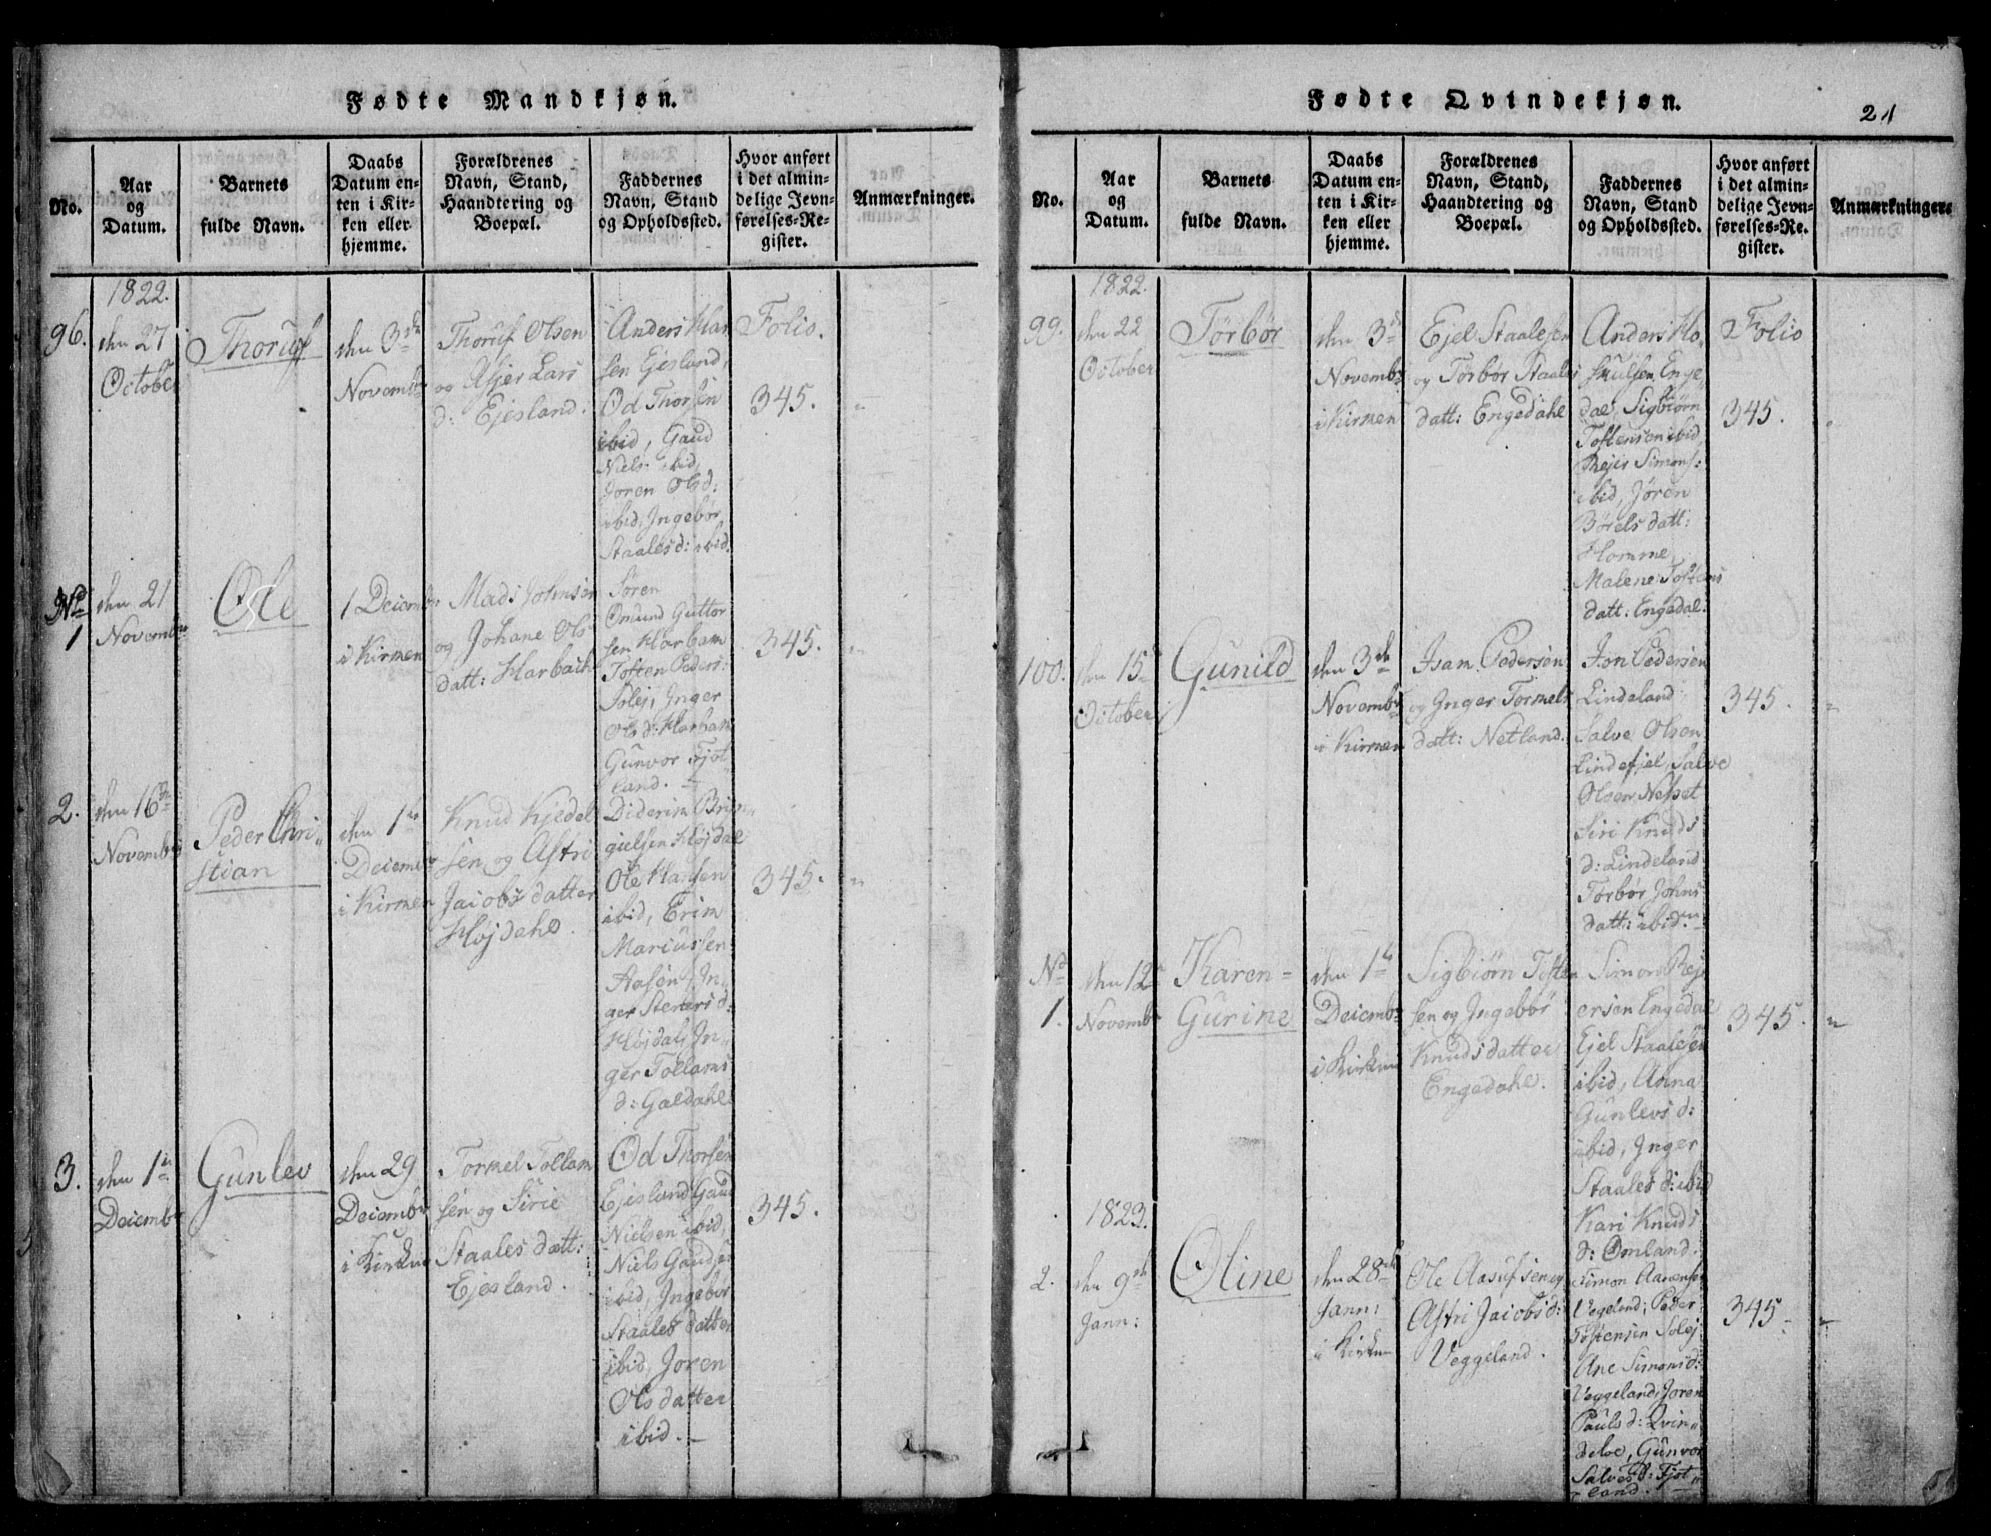 Fødte Mandkjøn.
No.
Aar
og
Datum.
Barnets
fulde Navn.
Daabs
Datum en-
ten i Kir-
ken eller
hjemme.
Forældrenes
Navn, Stand,
Haandtering og
Boepæl.
Faddernes
Navn, Stand
og Opholdssted.
Hvor anført
i det almin-
delige Jevn-
førelses-Re-
gister.
Anmærkninger.
1822.
96.
den 27
October
Thorulf
den 3de
Novembr
Thorulf Olsen
og Asjer Lars
d: Ejesland.
Anders Han
sen Ejesland,
Od Thorsen
ibid, Gaud
Niels. ibid,
Joren Olsd:
ibid, Ingebor
Staalesd: ibid.
Folio.
345.
No
1
den 21
Novembr
Ole
1 Decembr
i Kirken
Mads Johnsen
og Johane Ols
datt: Harbach
Søren
Omund Guttor
sen Harbam
Tosten Peders:
Solej, Inger
Ols d: Harbak
Gunvor Fjot
land.
345.
2.
den 16de
Novembr
Peder Chri„
stian
den 1te
Deicember
i Kirken
Knud Kjedel
sen og Astri
Jacobs datter
Højdahl.
Diderik Brin„
gielsen Højdal
Ole Hansen
ibid, Erik
Mariussen
Aasen, In„
ger Steners d:
Højdal, In„
ger Tollams
d: Galdahl
345.
3.
den 1te
Deicembr
Gunlev
den 29
Deicembr
i Kirken
Tormel Tollam
sen og Sirie
Staales datt:
Ejesland.
Od Thorsen
Ejesland, Gaud
Nielsen ibid,
Niels Gauds.
ibid, Ingebor
Staales datter
ibid, Joren
Olsdatter
ibid.
345.
Fødte Qvindekjøn.
21
No.
Aar
og
Datum.
Barnets
fulde Navn.
Daabs
Datum en-
ten i Kir-
ken eller
hjemme.
Forældrenes
Navn, Stand,
Haandtering og
Boepæl.
Faddernes
Navn, Stand
og Opholdssted.
Hvor anført
i det almin-
delige Jevn-
førelses-Re-
gister.
Anmærkninger.
1822.
99.
den 22
October
Torbor
den 3de
Novembr
i Kirken
Ejel Staalesen
og Torbor Staales
datt: Engedahl
Anders Ho
skulsen, Enge
dal, Sigbiørn
Tostensen ibid,
Rejer Simons:
ibid, Jøren
Børels datt:
Homme,
Malene Tostens
datt: Engedal.
Folio
345.
100.
den 15de
October
Gunild
den 3de
Novembr
i Kirken
Isak Pedersen
og Inger Tormels
datt: Netland.
Jon Pedersen
Lindeland
Salve Olsen
Lindefjel, Salve
Olsen Nesset
Siri Knuds
d: Lindeland
Torbor Johns
datt: ibid.
345.
No
1.
den 12te
Novembr
Karen-
Gurine
den 1te
Deicembr
i Kirken
Sigbiørn Tosten
sen og Ingebor
Knudsdatter
Engedahl.
Simon Rej
ersen Engedal
Ejel Staalesen
ibid, Anna
Gunlevs d:
ibid, Inger
Staales d: ibid
Kari Knuds
d: Omland.
345.
1823.
2.
den 9de
Jann:
Oline
den 28de
Jann:
i Kirken
Ole Aasulfsen og
Astri Jacobs d:
Veggeland.
Simon Aanens:
Vegeland; Peder
Tostensen Solej
Ane Simons d:
Veggeland, Joren
Pauls d: Qvin„
deloe, Gunvor
Salves d: Fjot„
land.
345.